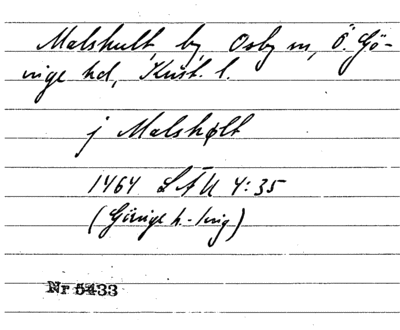 Malshult, by, Osby sn, Ö. Gö-
inge hd, Krist. l.
j Malshølt
1464 LÄU 4:35
(Göinge h.-krig)
Nr 5433